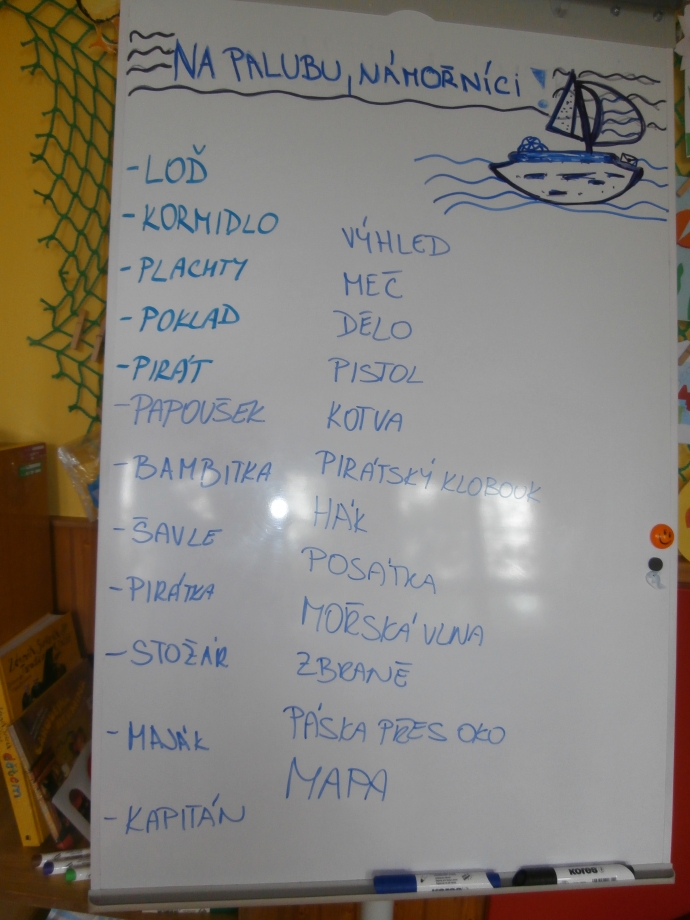 NA PALUBU, NÁMOŘNÍCI!
- LOĎ
- KORMIDLO
- PLACHTY
- POKLAD
- PIRÁT
- PAPOUŠEK
- BAMBITKA
- ŠAVLE
- PIRÁTKA
- STOŽÁR
- MAJÁK
- KAPITÁN
VÝHLED
MEČ
DĚLO
PISTOL
KOTVA
PIRÁTSKÝ KLOBOUK
HÁK
POSÁTKA
MOŘSKÁ VLNA
ZBRANĚ
PÁSKA PŘES OKO
MAPA
KORES